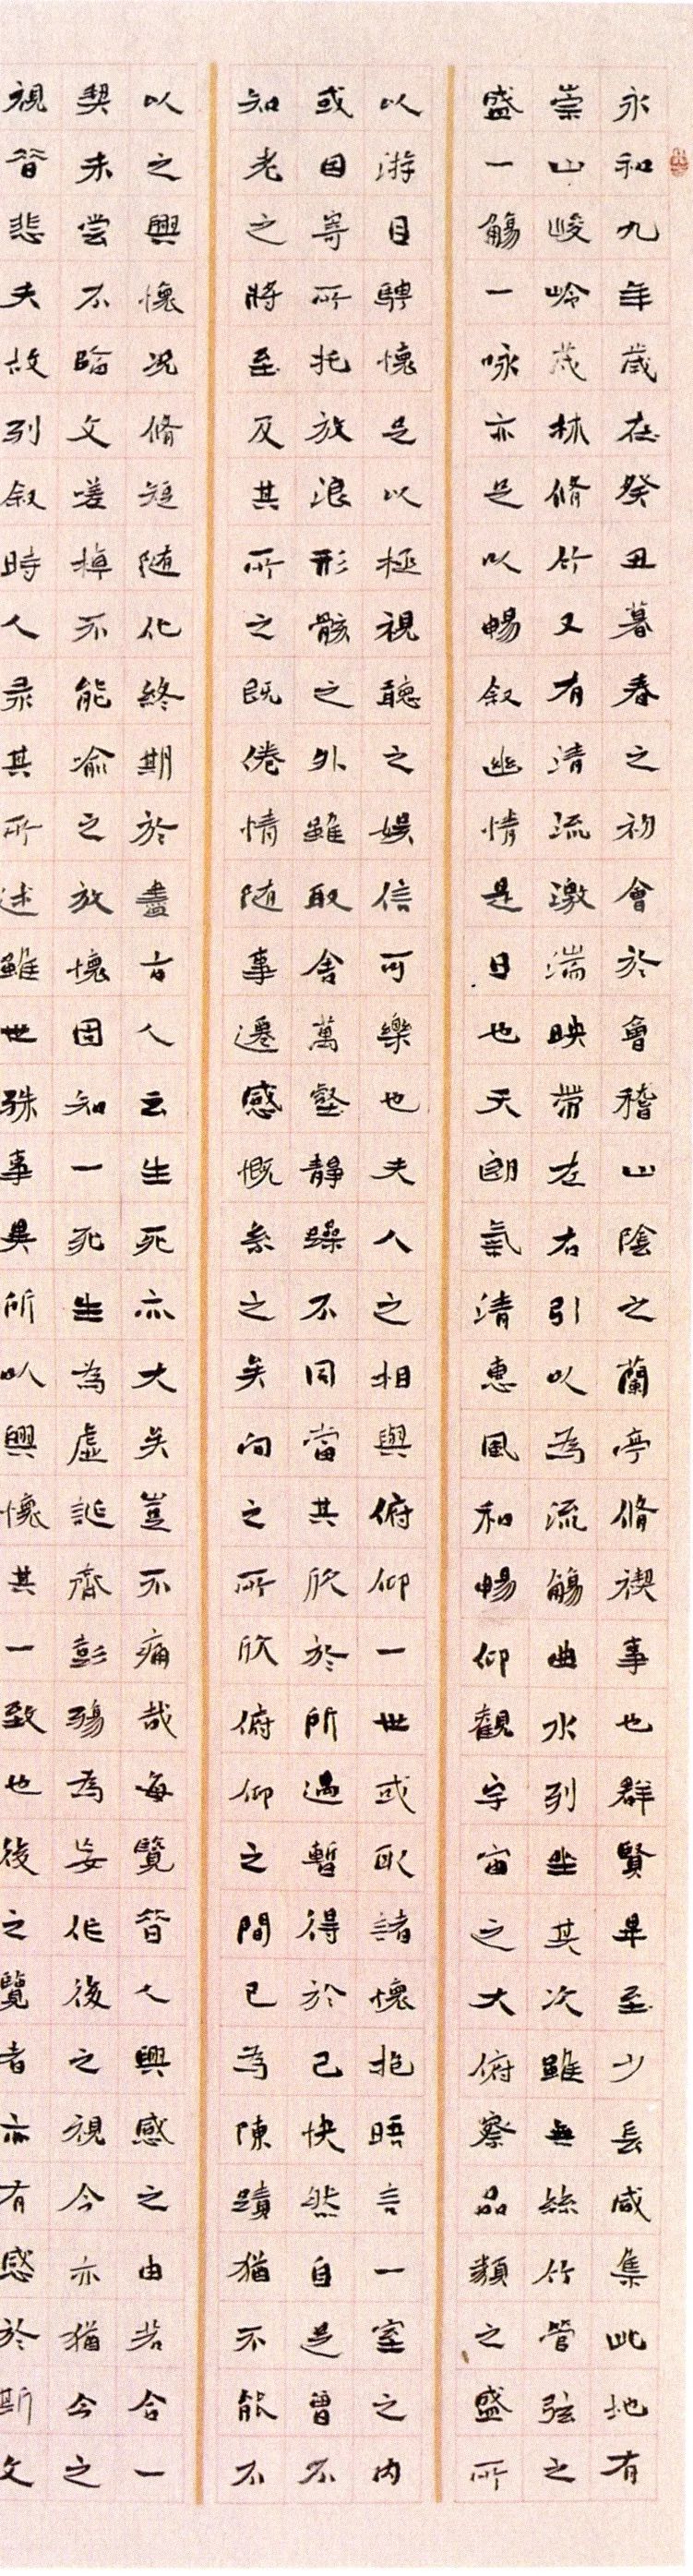 永和九年歲在癸丑暮春之初會於會稽山陰之蘭亭脩禊事也群賢畢至少長咸集此地有
崇山峻岭茂林脩竹又有清流激湍映帶左右引以為流觴曲水列坐其次雖無絲竹管弦之
盛一觴一咏亦足以暢叙幽情是日也天朗氣清惠風和暢仰觀宇宙之大俯察品類之盛所
以游目騁懷足以極視聽之娛信可樂也夫人之相與俯仰一世或取諸懷抱晤言一室之內
或因寄所托放浪形骸之外雖取舍萬壑靜躁不同當其欣於所遇暫得於己快然自足曾不
知老之將至及其所之既倦情隨事遷感慨系之矣向之所欣俯仰之間已為陳蹟猶不能不
以之興懷況脩短隨化終期於盡古人云生死亦大矣豈不痛哉每覽昔人興感之由若合一
契未嘗不臨文嗟悼不能喻之放懷固知一死生為虛誕齊彭殤為妄作後之視今亦猶今之
視昔悲夫故列叙時人录其所述雖世殊事異所以興懷其一致也後之覽者亦有感於斯文